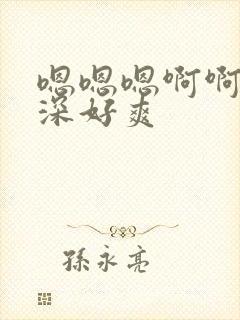 嗯嗯嗯啊啊
深好爽
孫永亮